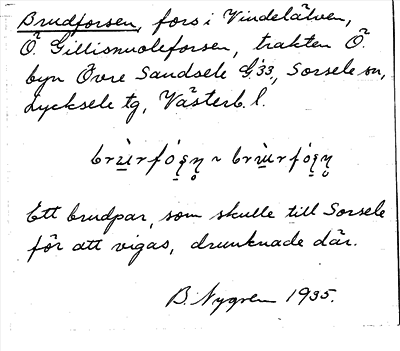 Brudforsen, fors i Vindelälven,
Ö. Gillisnuoleforsen, trakten Ö.
byn Övre Sandsele G:33, Sorsele sn,
Lycksele tg, Västerb. l.
Ett brudpar, som skulle till Sorsele
för att vigas, drunknade där.
B. Nygren 1935.